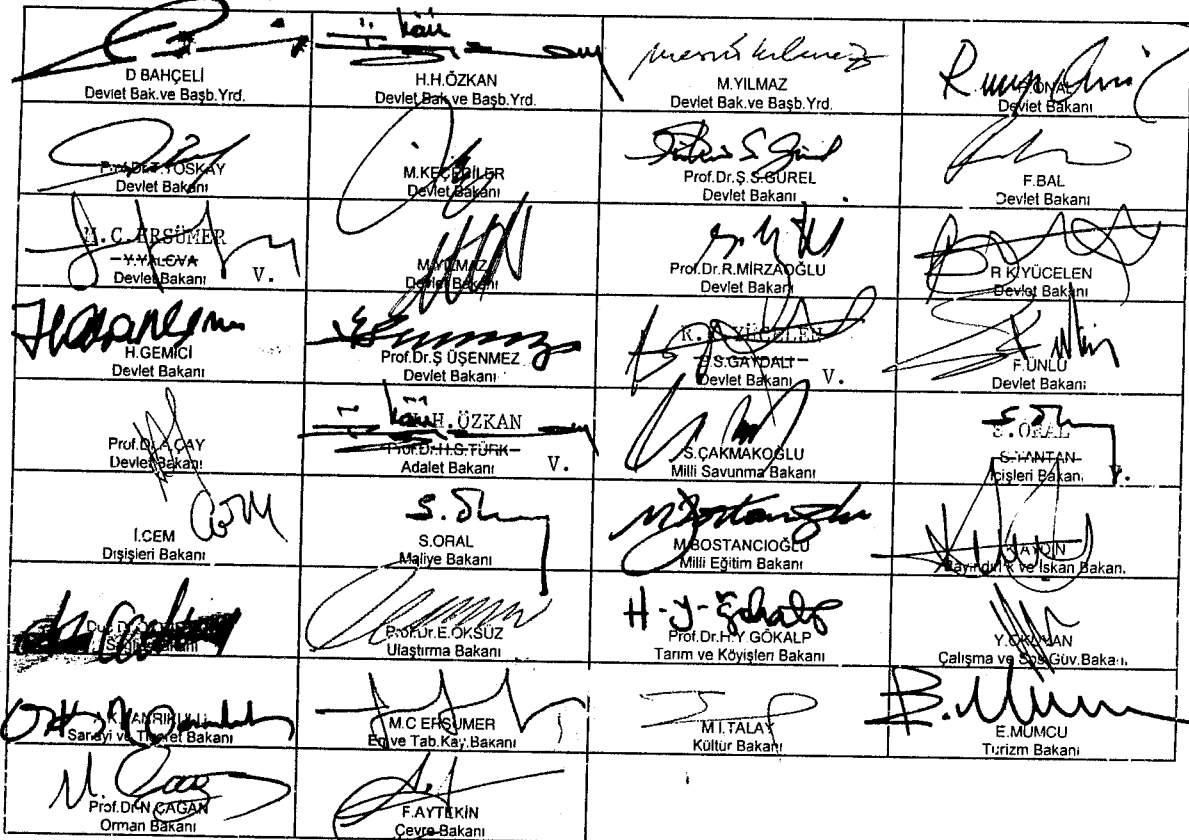 D BAHÇELİ
Devlet Bak.ve Başb.Yrd.
H.H.ÖZKAN
Devlet Bak.ve Başb.Yrd.
M.YILMAZ
Devlet Bak.ve Başb.Yrd.
Devlet Bakanı
YOSKAY
Devlet Bakanı
M.KEÇECİLER
Devlet Bakanı
Prof.Dr.Ş.S.GÜREL
Devlet Bakanı
F.BAL
Devlet Bakanı
M.C.ERSÜMER
Y.YALOVA
Devlet Bakanı V.
M.YILMAZ
Devlet Bakanı
Prof.Dr.R.MİRZAOĞLU
Devlet Bakanı
R K.YÜCELEN
Devlet Bakanı
H.GEMİCİ
Devlet Bakanı
Prof.Dr.Ş ÜŞENMEZ
Devlet Bakanı
R.K.YÜCELEN
E.S.GAYDALI
Devlet Bakanı V.
F.ÜNLÜ
Devlet Bakanı
Prof.Dr.A.ÇAY
Devlet Bakanı
H.H.ÖZKAN
Prof.Dr.H.S.TÜRK
Adalet Bakanı V.
S.ÇAKMAKOĞLU
Milli Savunma Bakanı
S.ORAL
S.TANTAN
İçişleri Bakanı V.
İ.CEM
Dışişleri Bakanı
S.ORAL
Maliye Bakanı
M.BOSTANCIOĞLU
Milli Eğitim Bakanı
K.AYDIN
Bayındırlık ve İskan Bakanı
Prof.Dr.E.ÖKSÜZ
Ulaştırma Bakanı
H-Y-Gökalp
Prof.Dr.H.Y GÖKALP
Tarım ve Köyişleri Bakanı
Y.OKUYAN
Çalışma ve Sos.Güv.Bakanı
A.K.TANRIKULU
Sanayi ve Ticaret Bakanı
M.C ERSÜMER
En.ve Tab.Kay.Bakanı
M İ.TALAY
Kültür Bakanı
E.MUMCU
Turizm Bakanı
Prof.Dr.N.ÇAĞAN
Orman Bakanı
F.AYTEKİN
Çevre Bakanı